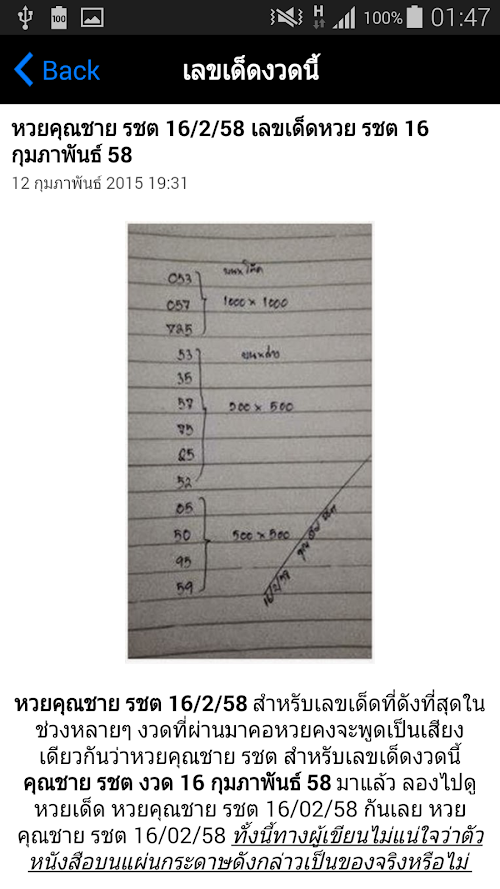 100
H
100%
01:47
Back
เลขเด็ดงวดนี้
หวยคุณชาย รชต 16/2/58 เลขเด็ดหวย รชต 16
กุมภาพันธ์ 58
12 กุมภาพันธ์ 2015 19:31
053
057 1000 x 1000
735
53
35
57 500 x 500
75
25
52
05
50 500 x 500
95
59
หวยคุณชาย รชต 16/2/58 สำหรับเลขเด็ดที่ดังที่สุดใน
ช่วงหลายๆ งวดที่ผ่านมาคอหวยคงจะพูดเป็นเสียง
เดียวกันว่าหวยคุณชาย รชต สำหรับเลขเด็ดงวดนี้
คุณชาย รชต งวด 16 กุมภาพันธ์ 58 มาแล้ว ลองไปดู
หวยเด็ด หวยคุณชาย รชต 16/02/58 กันเลย หวย
คุณชาย รชต 16/02/58 ทั้งนี้ทางผู้เขียนไม่แน่ใจว่าตัว
หนังสือบนแผ่นกระดาษดังกล่าวเป็นของจริงหรือไม่